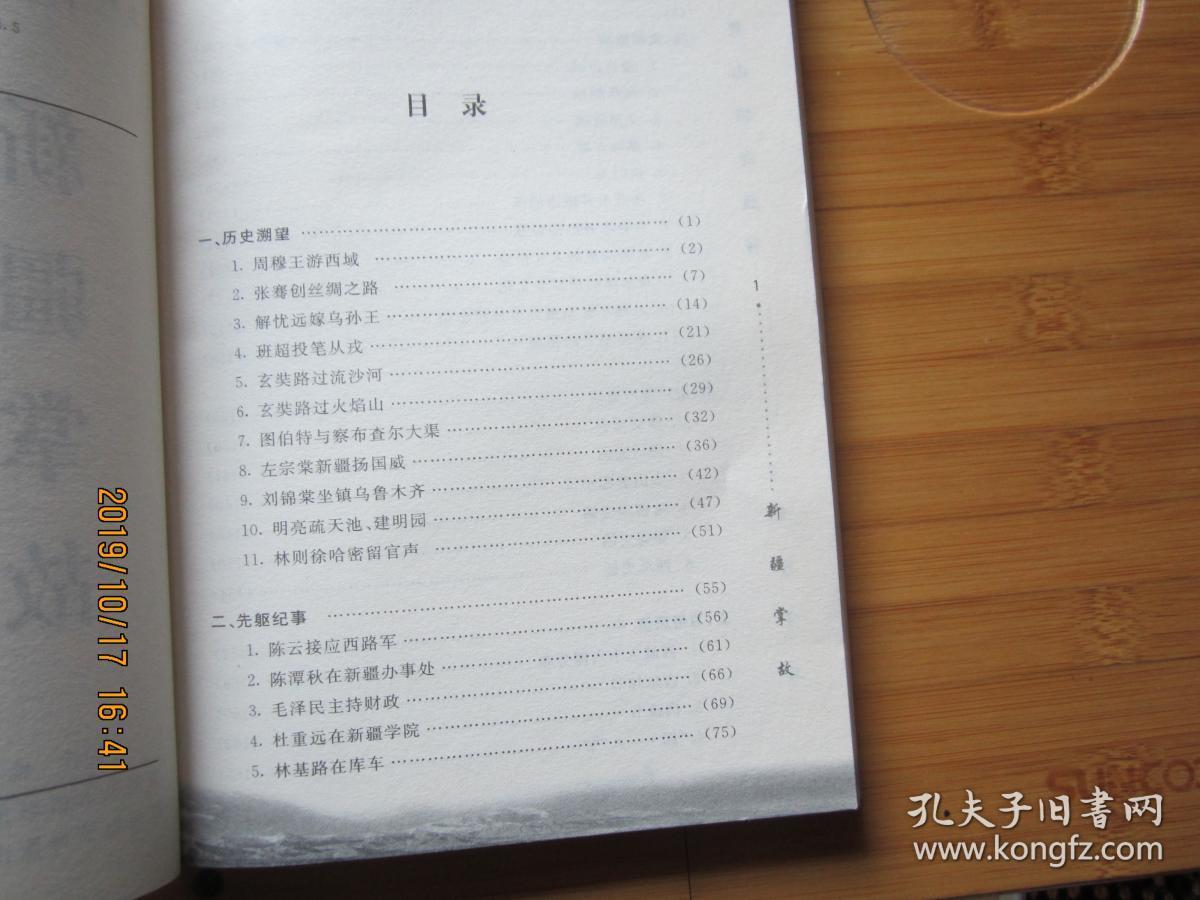 目 录
一、历史溯望 ……………………………………………… (1)
1. 周穆王游西域 ……………………………………… (2)
2. 张骞创丝绸之路 …………………………………… (7)
3. 解忧远嫁乌孙王 …………………………………… (14)
4. 班超投笔从戎 ……………………………………… (21)
5. 玄奘路过流沙河 …………………………………… (26)
6. 玄奘路过火焰山 …………………………………… (29)
7. 图伯特与察布查尔大渠 …………………………… (32)
8. 左宗棠新疆扬国威 ………………………………… (36)
9. 刘锦棠坐镇乌鲁木齐 ……………………………… (42)
10. 明亮疏天池、建明园 ……………………………… (47)
11. 林则徐哈密留官声 ………………………………… (51)
二、先躯纪事 ……………………………………………… (55)
1. 陈云接应西路军 …………………………………… (56)
2. 陈潭秋在新疆办事处 ……………………………… (61)
3. 毛泽民主持财政 …………………………………… (66)
4. 杜重远在新疆学院 ………………………………… (69)
5. 林基路在库车 ……………………………………… (75)
1
新疆掌故
2019/10/17 16:41
孔夫子旧书网
www.kongfz.com